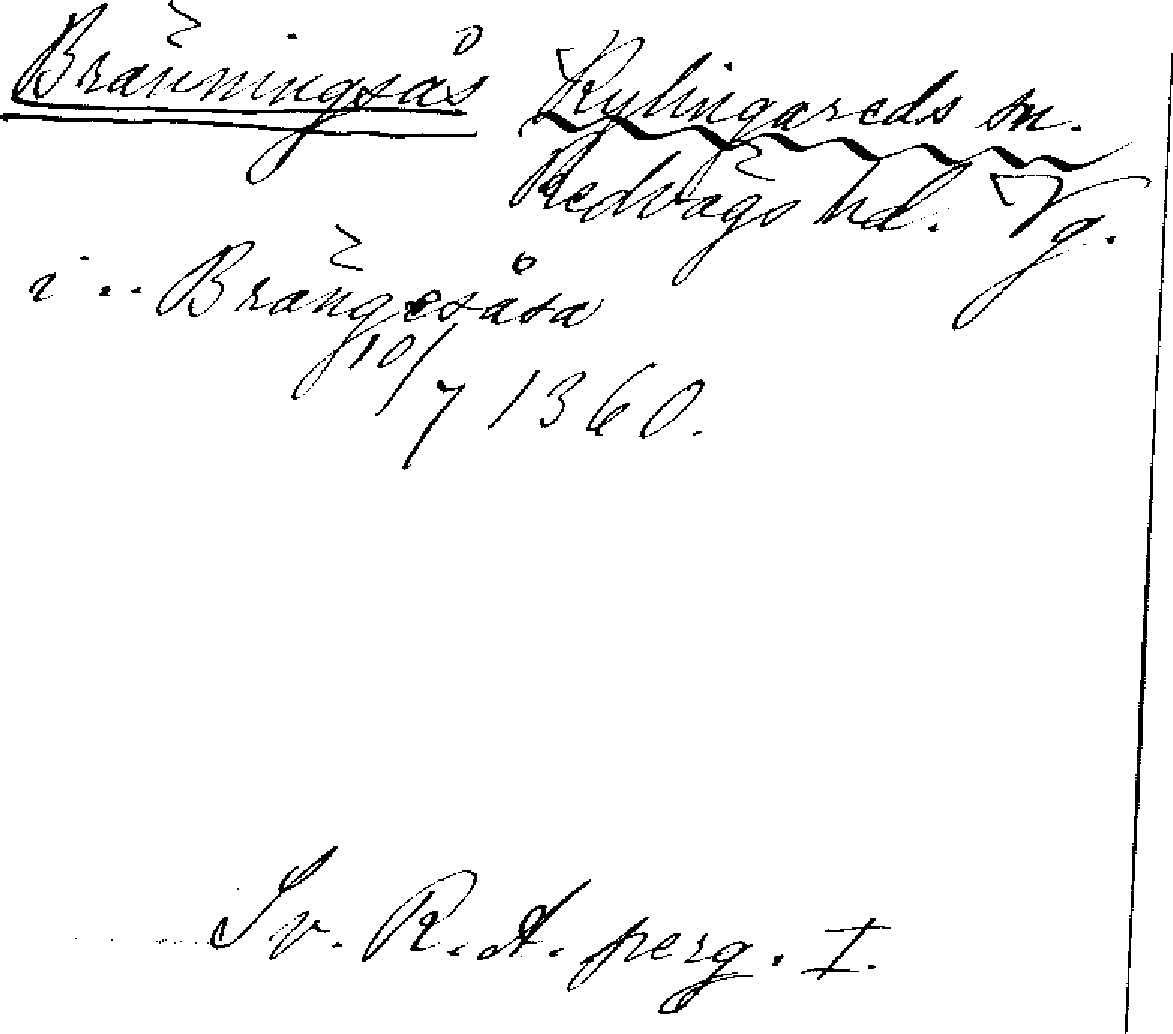 Bränningsås Kylingareds sn.
Redvägs hd. Vg.
i .. Brängesåsa
10/7 1360.
Sv. R. A. perg. I.